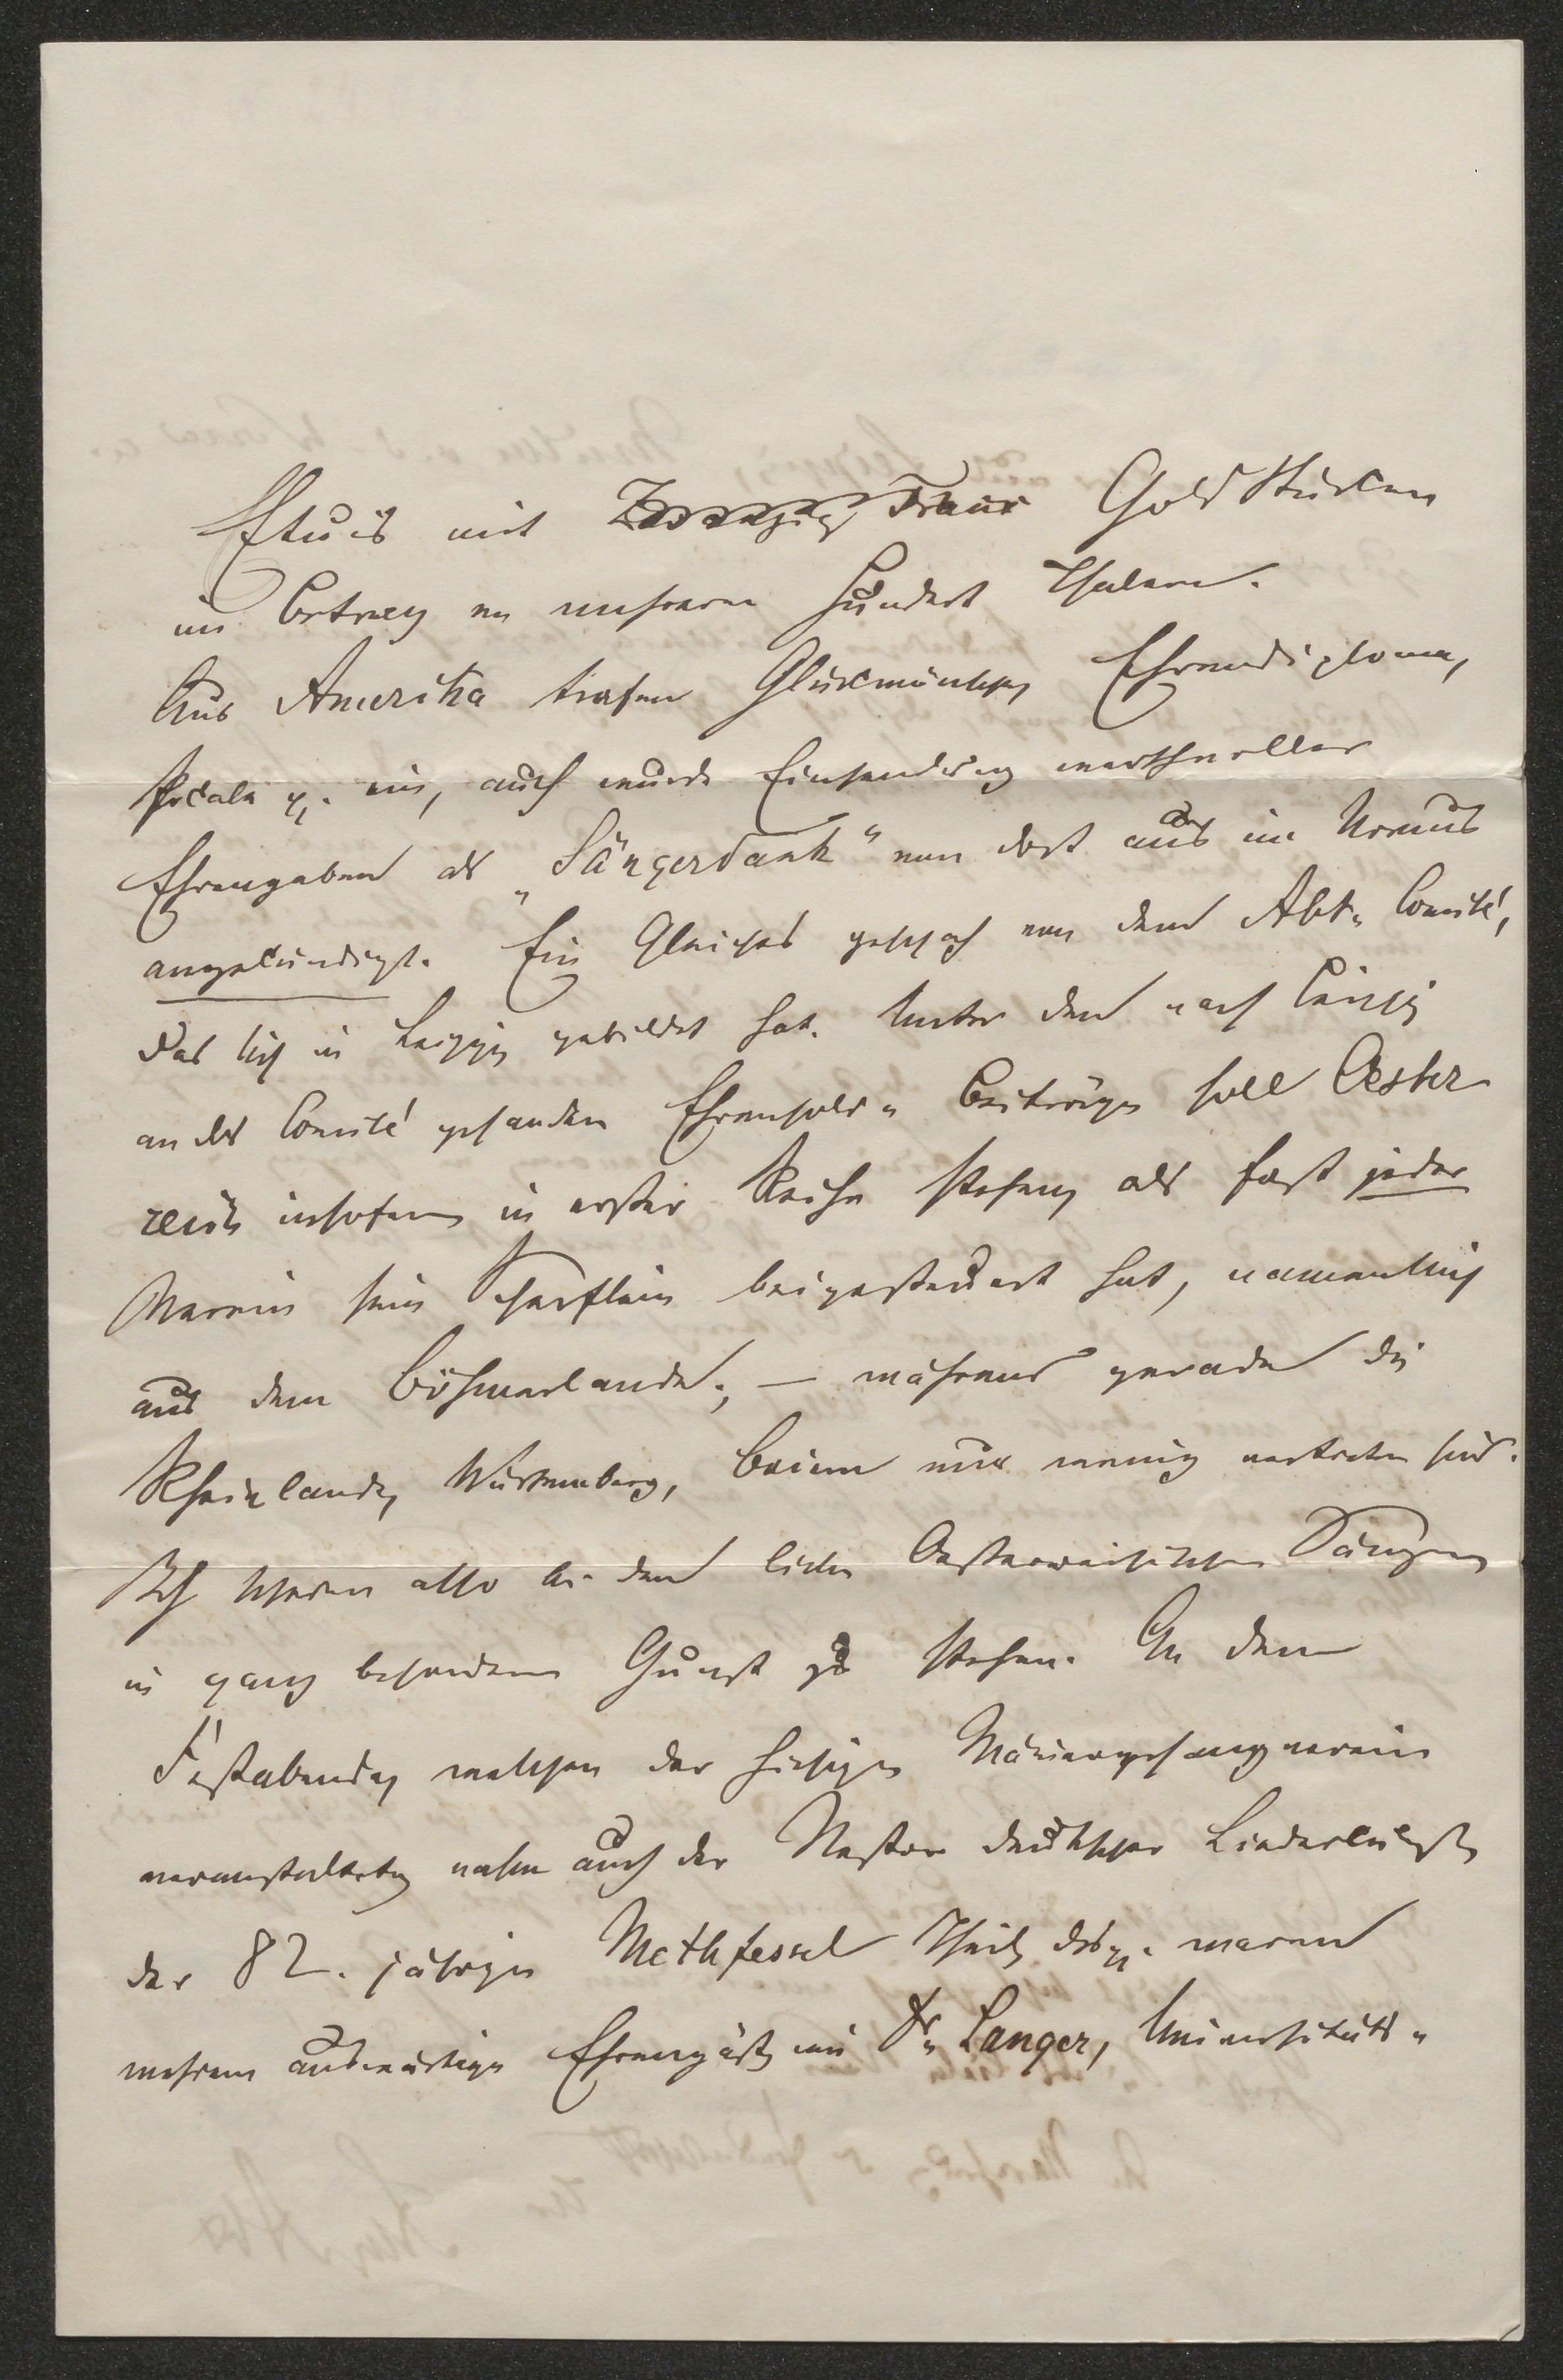 Etuis mit Zwanzig Franc Gold Stücken
im Betrag von mehreren Hundert Thalern.
Aus Amerika trafen Glückwünsche, Ehrendiplome,
Pocale p. ein, auch wurde Einsendung werthvoller
Ehrengaben als „Sängerdank" von dort aus im Voraus
angekündigt. Ein Gleiches geschah von dem Abt-Comité,
das sich in Leipzig gebildet hat. Unter den nach Leipzig
an das Comité gesandten Ehrensold-Beiträgen soll Oester
reich insofern in erster Reihe stehen, als fast jeder
Verein sein Scherflein beigesteuert hat, namentlich
aus dem Böhmerlande; — während gerade die
Rheinlande, Württemberg, Baiern nur wenig vertreten sind.
Ich scheine also bei den lieben Oesterreichischen Sängern
in ganz besonderer Gunst zu stehen. An dem
Festabende, welchen der hiesige Männergesangverein
veranstaltete, nahm auch der Nestor deutscher Liederkunst,
der 82. jährige Methfessel Theil, desgl. waren
mehrere auswärtige Ehrengäste wie Dr. Langer, Universitäts-